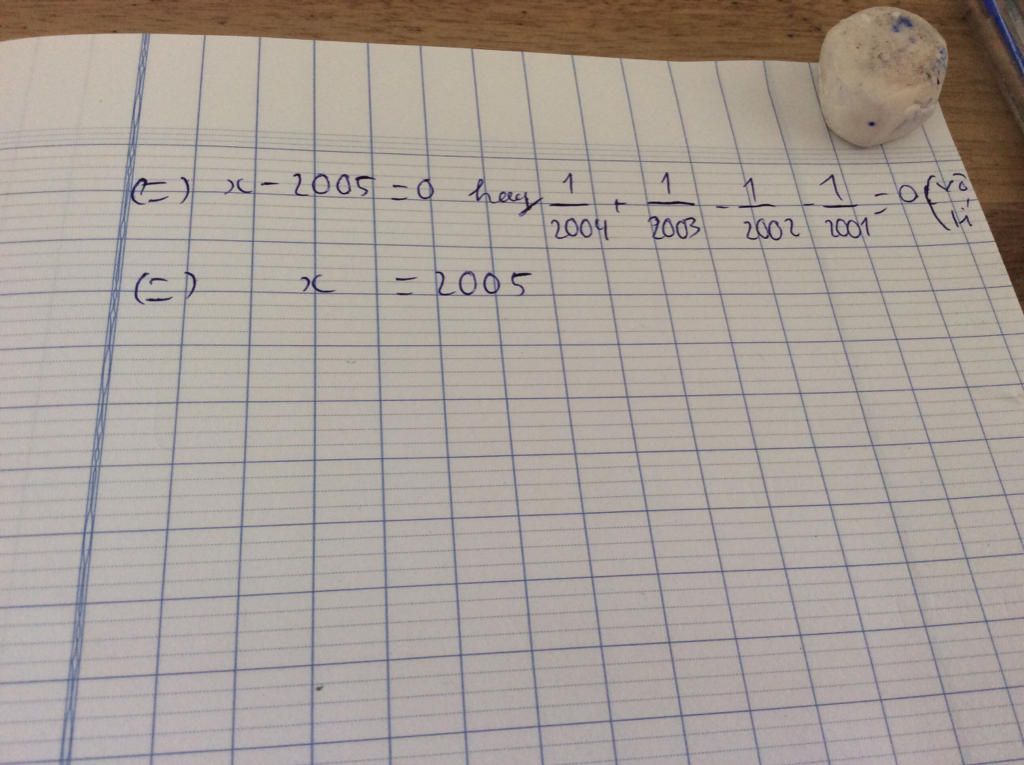 (=) x - 2005 = 0 hay 1/2004 + 1/2003 - 1/2002 - 1/2001 = 0 (vô lí
(=) x = 2005